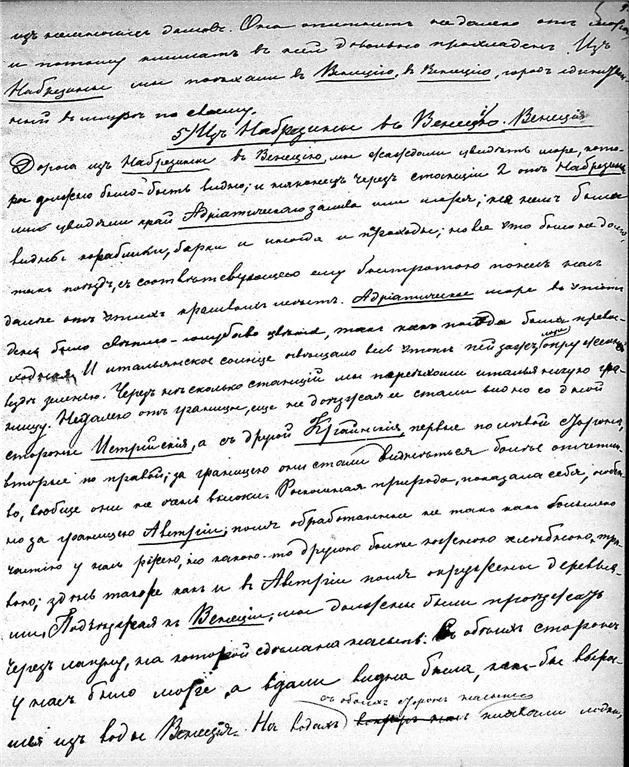 изъ каменныхъ домовъ. Она отстоитъ недалеко отъ моря,
и потому климатъ въ ней довольно прохладенъ. Изъ
Набрезины мы поѣхали въ Венецію, въ Венецію, городъ единствен-
ный въ мірѣ по своему.
5) Изъ Набрезины въ Венецію. Венеція
Дорога изъ Набрезины въ Венецію, мы ожидали увидѣть море, кото-
рое должно было быть видно; и наконецъ черезъ станціи 2 отъ Набрезины
мы увидѣли край Адріатическаго залива или моря; на немъ были
видны кораблики, барки и иногда и пароходы; но все это было недолго,
такъ поѣздъ, съ соотвѣтствующею ему быстротою понесъ насъ
далѣе отъ этихъ красивыхъ мѣстъ. Адріатическое море въ этотъ
день было свѣтло-голубого цвѣта, такъ какъ погода была превос-
ходная. И итальянское солнце освѣщало весь этотъ пейзажъ, окружен
ную землею. Черезъ нѣсколько станцій мы переѣхали итальянскую гра-
ницу. Недалеко отъ границы, еще не доѣзжая ее стали видны со одной
стороны Истрійскія, а съ другой Крайнскія, первые по лѣвой сторонѣ,
вторые по правой; за границею они стали виднѣться болѣе отчетли-
во, вообще они не очень высоки. Роскошная природа, показала себя,
но за границею Австріи; поля обработанные не такъ какъ большею
частію у насъ рожью, но какою-то другою болѣе южною хлѣбною, тра-
вою; здѣсь также какъ и въ Австріи поля окружены деревья-
ми. Подъѣзжая къ Венеціи, мы должны были проѣзжать
черезъ лагуну, на которой сдѣлана насыпь. Съ обоихъ сторонъ
у насъ было море, а вдали видна была, какъ бы вырос-
шая изъ воды Венеція. На водахъ съ обоихъ сторонъ насыпи лодки,